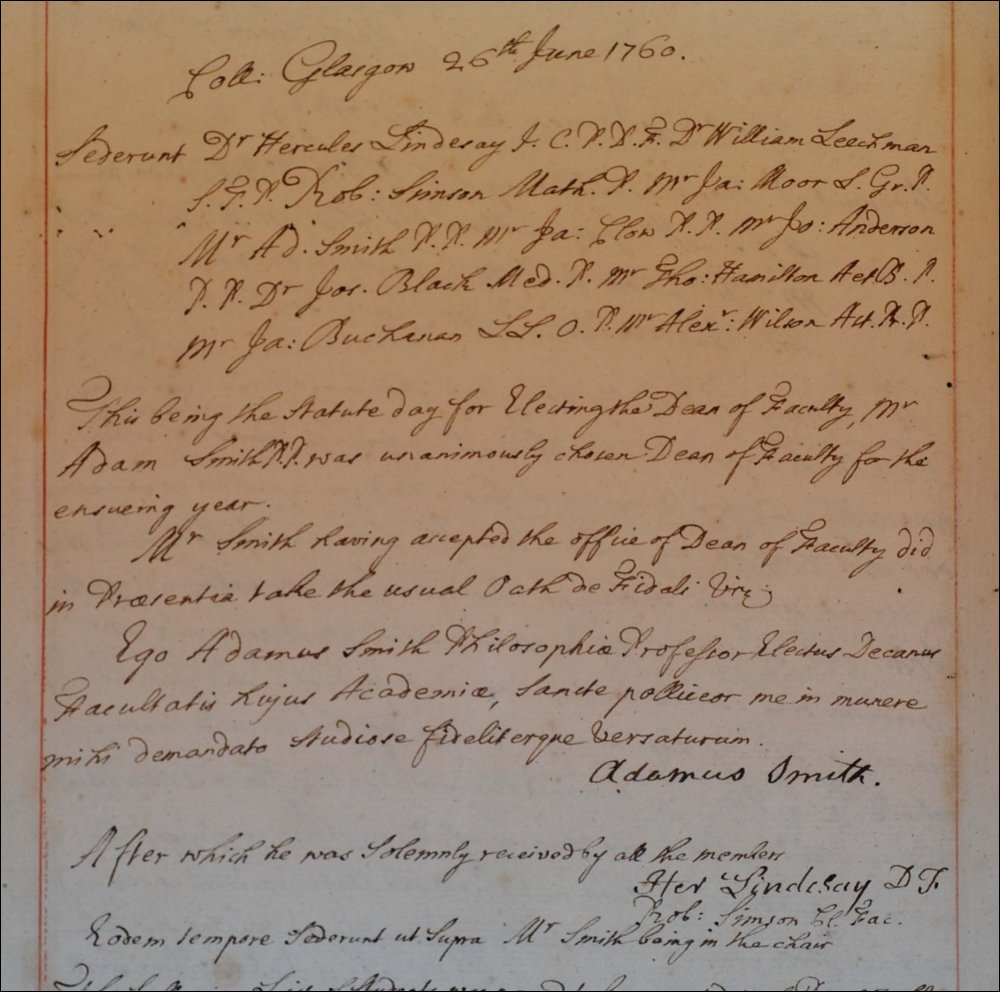 Coll: Glasgow 26th June 1760.
Sederunt Dr Hercules Lindesay J. C. P. D. F. Dr William Leechman
S. T. P. Rob: Simson Math. P. Mr Ja: Moor L. Gr. P.
Mr Ad. Smith P. P. Mr Ja: Clow P. P. Mr Jo: Anderson
P. P. Dr Jos. Black Med. P. Mr Tho: Hamilton Act B. P.
Mr Ja: Buchanan LL. O. P. Mr Alexr: Wilson Ast. Pr. P.
This being the Statute day for Electing the Dean of Faculty, Mr
Adam Smith P. P. was unanimously chosen Dean of Faculty for the
ensueing year.
Mr Smith having accepted the office of Dean of Faculty did
in Præsentia take the usual Oath de Fidali Viz
Ego Adamus Smith Philosophiæ Professor Electus Decanus
Facultatis hujus Academiæ, Sancte polliceor me in munere
mihi demandato Studiose fideliterque Versaturum.
Adamus Smith.
After which he was Solemnly received by all the members
Her Lindesay D F.
Rob: Simson Cl Fac.
Eodem tempore Sederunt ut Supra Mr Smith being in the chair